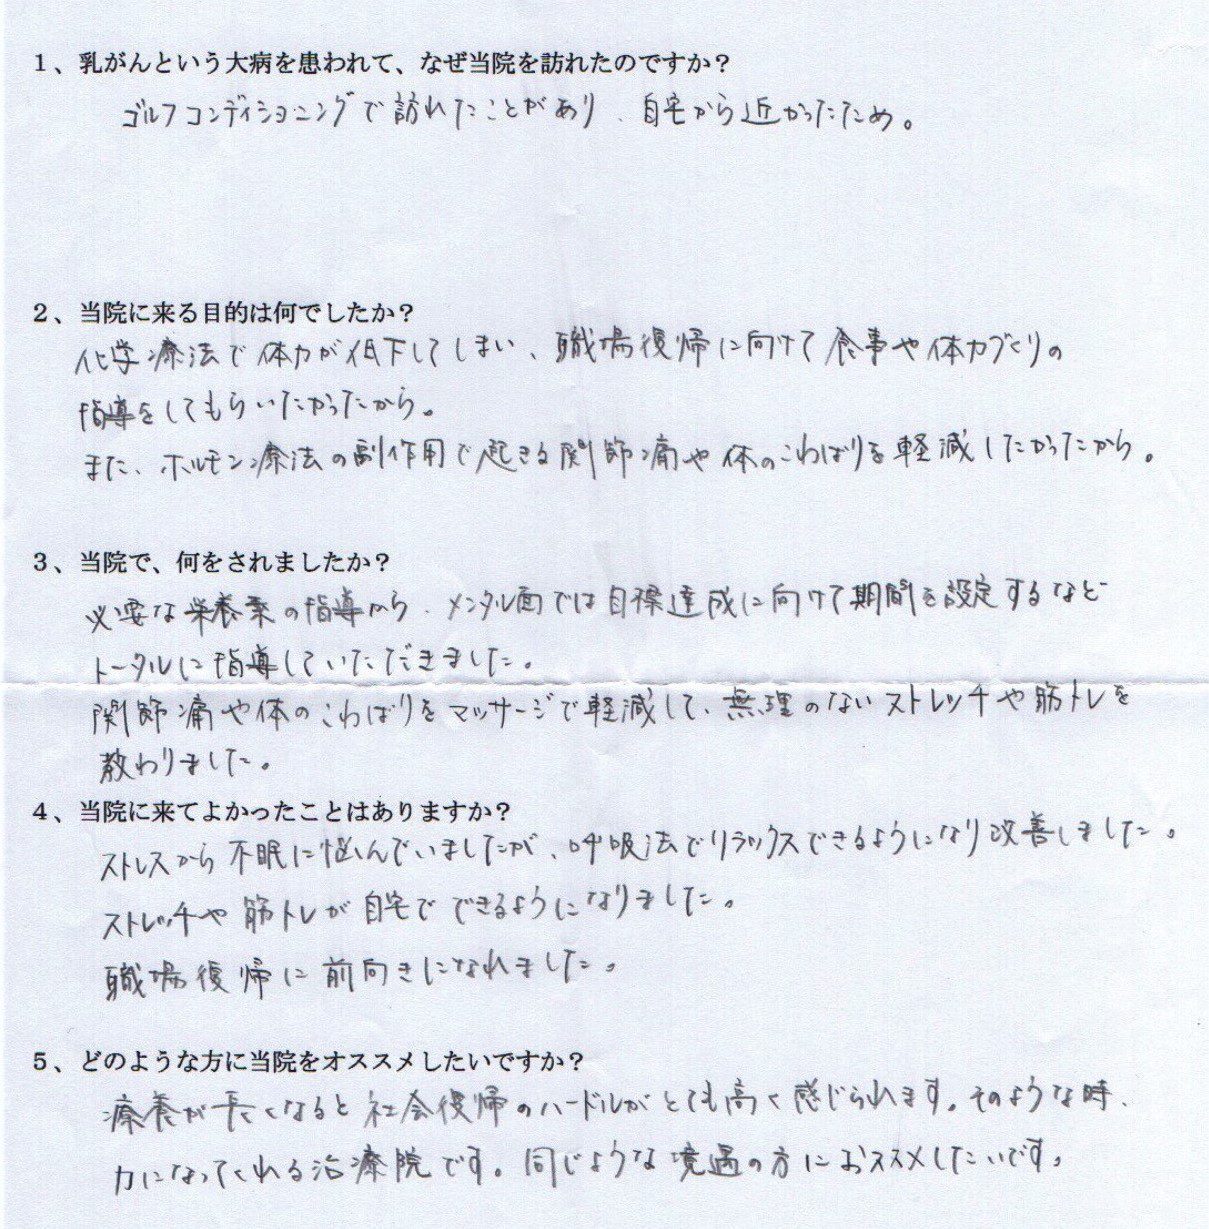 1、乳がんという大病を患われて、なぜ当院を訪れたのですか?
ゴルフコンディショニングで訪れたことがあり、自宅から近かったため。
2、当院に来る目的は何でしたか?
化学療法で体力が低下してしまい、職場復帰に向けて食事や体力づくりの
指導をしてもらいたかったから。
また、ホルモン療法の副作用で起きる関節痛や体のこわばりを軽減したかったから。
3、当院で、何をされましたか?
必要な栄養素の指導から、メンタル面では目標達成に向けて期間を設定するなど
トータルに指導していただきました。
関節痛や体のこわばりをマッサージで軽減して、無理のないストレッチや筋トレを
教わりました。
4、当院に来てよかったことはありますか?
ストレスから不眠に悩んでいましたが、呼吸法でリラックスできるようになり改善しました。
ストレッチや筋トレが自宅でできるようになりました。
職場復帰に前向きになれました。
5、どのような方に当院をオススメしたいですか?
療養が長くなると社会復帰のハードルがとても高く感じられます。そのような時、
力になってくれる治療院です。同じような境遇の方におススメしたいです。